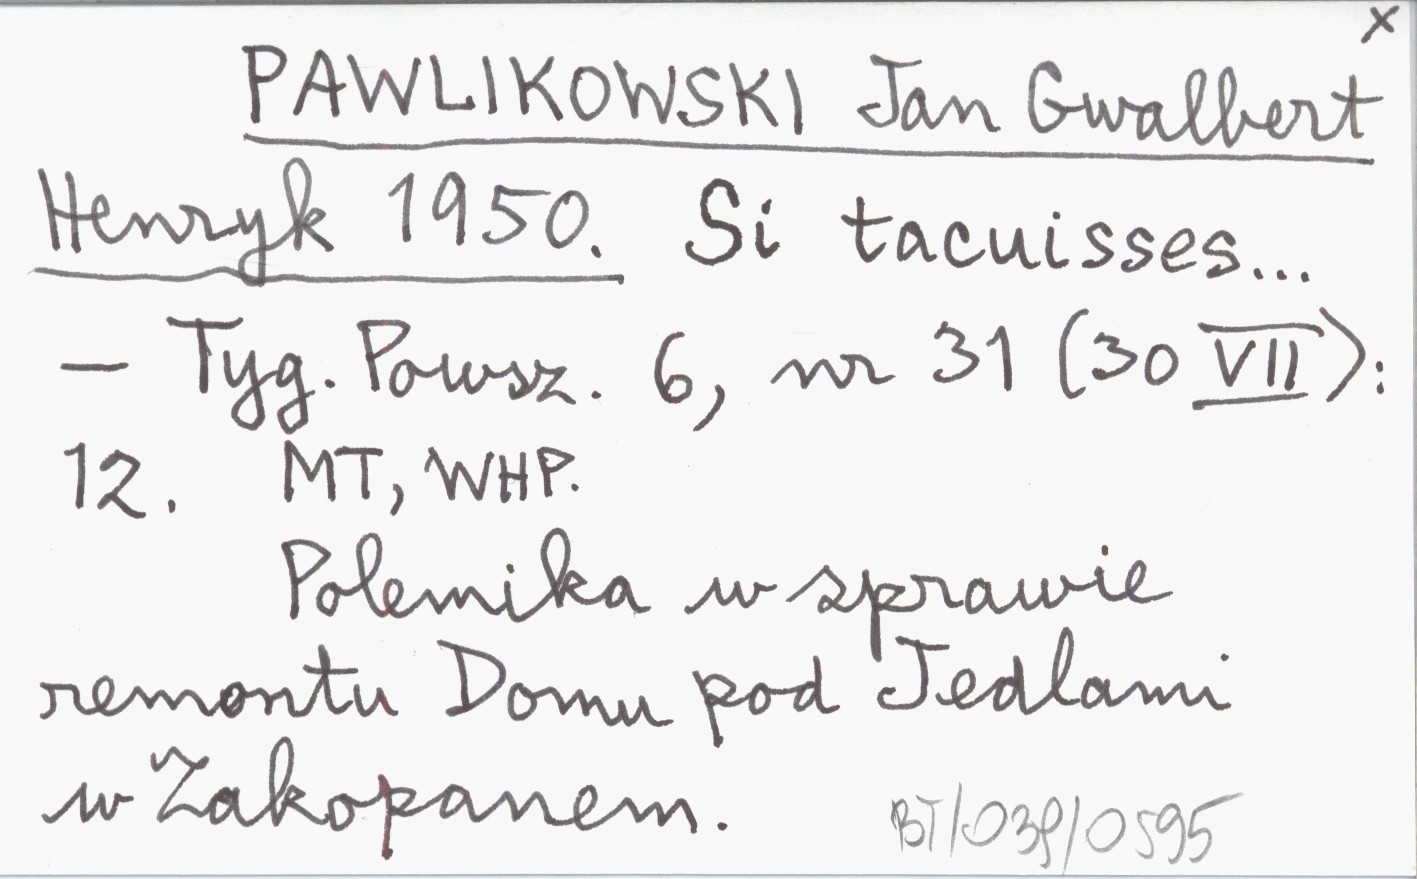 x
PAWLIKOWSKI Jan Gwalbert
Henryk 1950. Si tacuisses...
– Tyg. Powsz. 6, nr 31 (30 VII):
12. MT, WHP.
Polemika w sprawie
remontu Domu pod Jedlami
w Zakopanem.
BT/039/0595